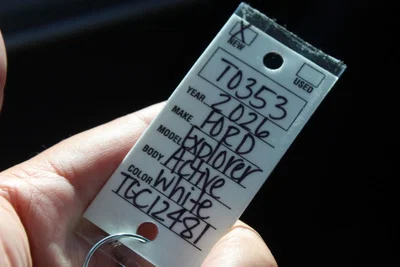 X
NEW USED
T0353
YEAR 2026
MAKE FORD
MODEL Explorer
BODY Active
COLOR White
TGC12481